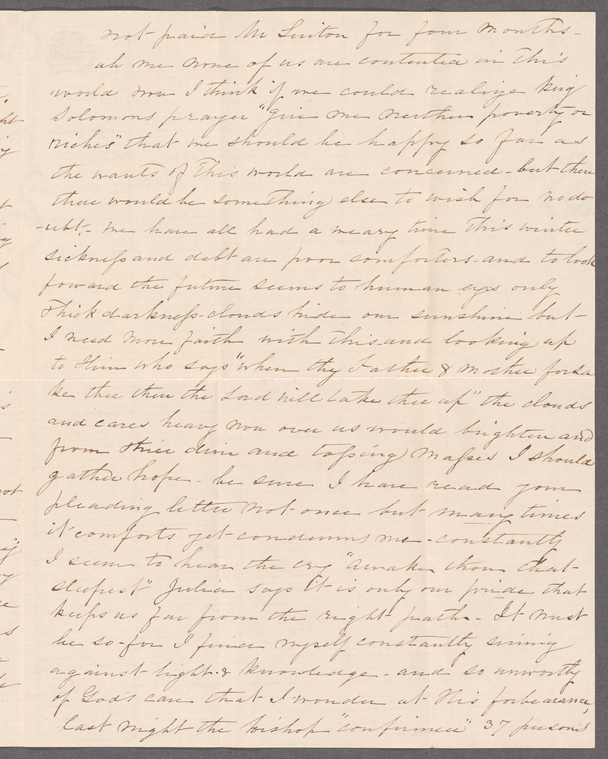 not paid Mr Linton for four months-
ah me none of us are contented in this
world now I think if we could realize King
Solomons prayer "give me neither poverty or
riches" that we should be happy so far as
the wants of this world are concerned - but then
there would be something else to wish for no do
-ubt - we have all had a weary time this winter
sickness and debt are poor comforters - and to look
forward the future seems to human eyes only
thick darkness - clouds hide our sunshine but -
I need more faith with this and looking up
to Him who says "when thy Father & Mother forsa
ke thee then the Lord will take thee up" the clouds
and cares heavy now over us would brighten and
from their dim and tossing masses I should
gather hope - be sure I have read your
pleading letter not once but many times
it comforts yet condemns me - constantly
I seem to hear the cry "awake thou that
sleepest" Julia says it is only our pride that
keeps us far from the right path - It must
be so - for I find myself constantly sinning
against light & knowledge - and so unworthy
of God's care that I wonder at His forbearance,
last night the bishop "confirmed" 37 persons